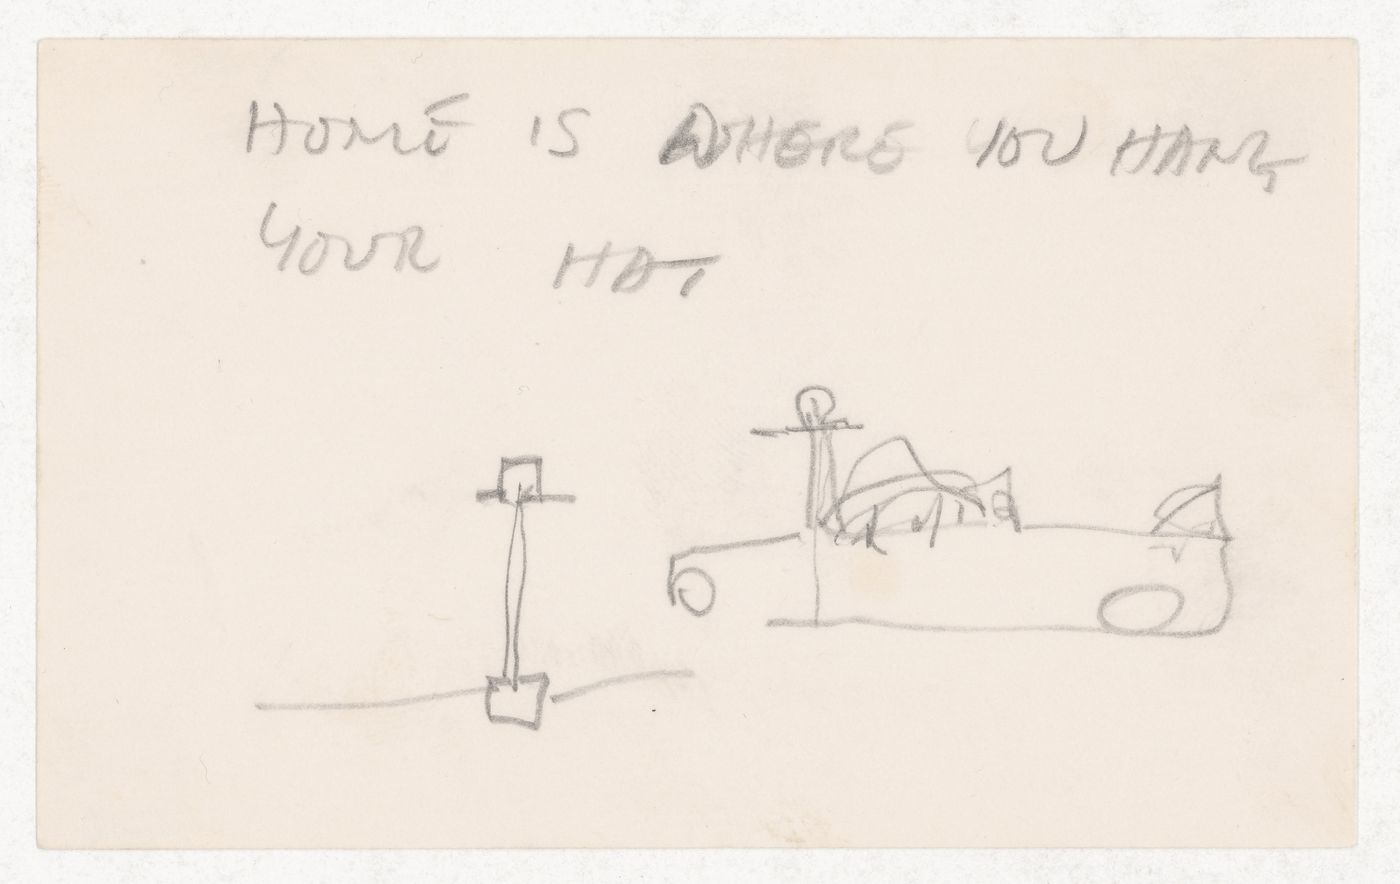 HOME IS WHERE YOU HANG
YOUR HAT